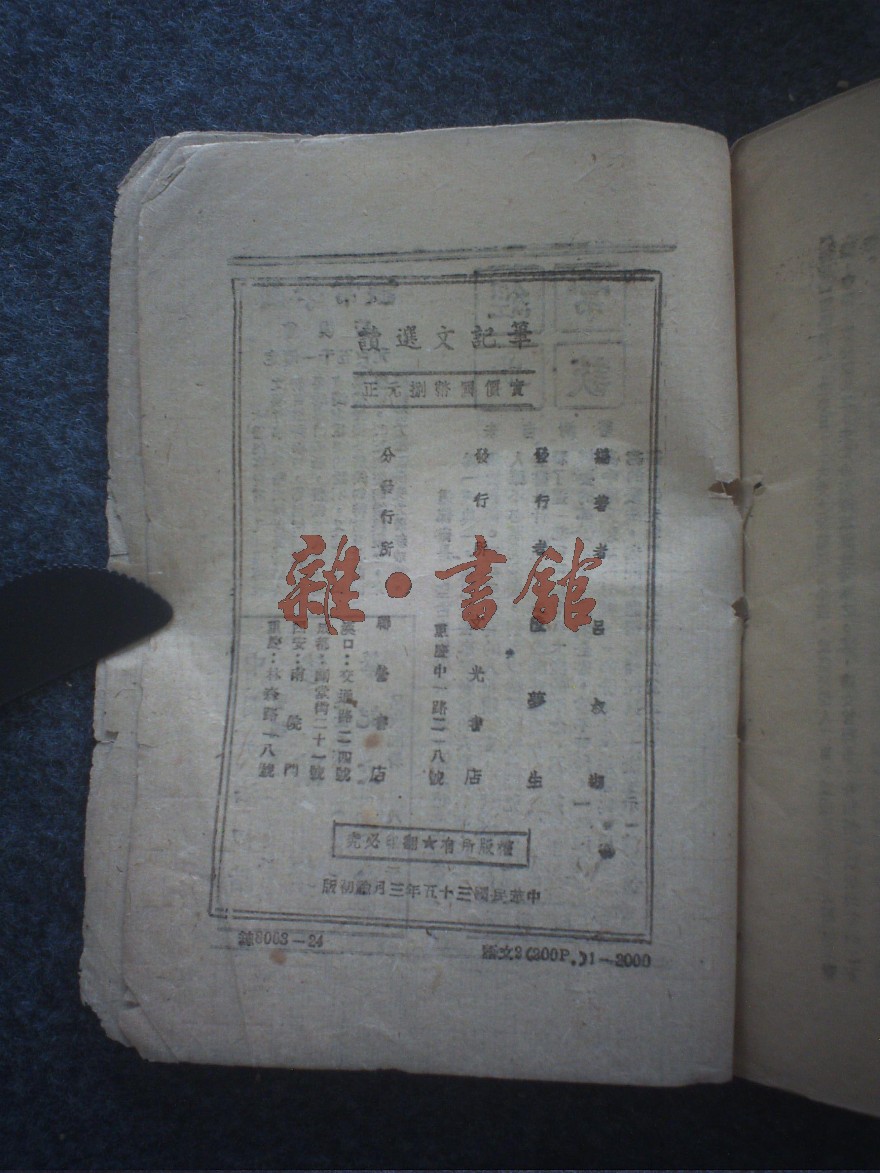 筆記文選讀
實價國幣捌元正
編著者 呂叔湘
發行者 陸夢生
發行所 文光書店
重慶中一路二一八號
分發行所 聯營書店
漢口：交通路二四號
成都：祠堂街二十一號
西安：南院門
重慶：林森路一八號
權版所有★翻印必究
中華民國三十五年三月渝初版
8003－24
文2(200P.)1－2000
雜·書館